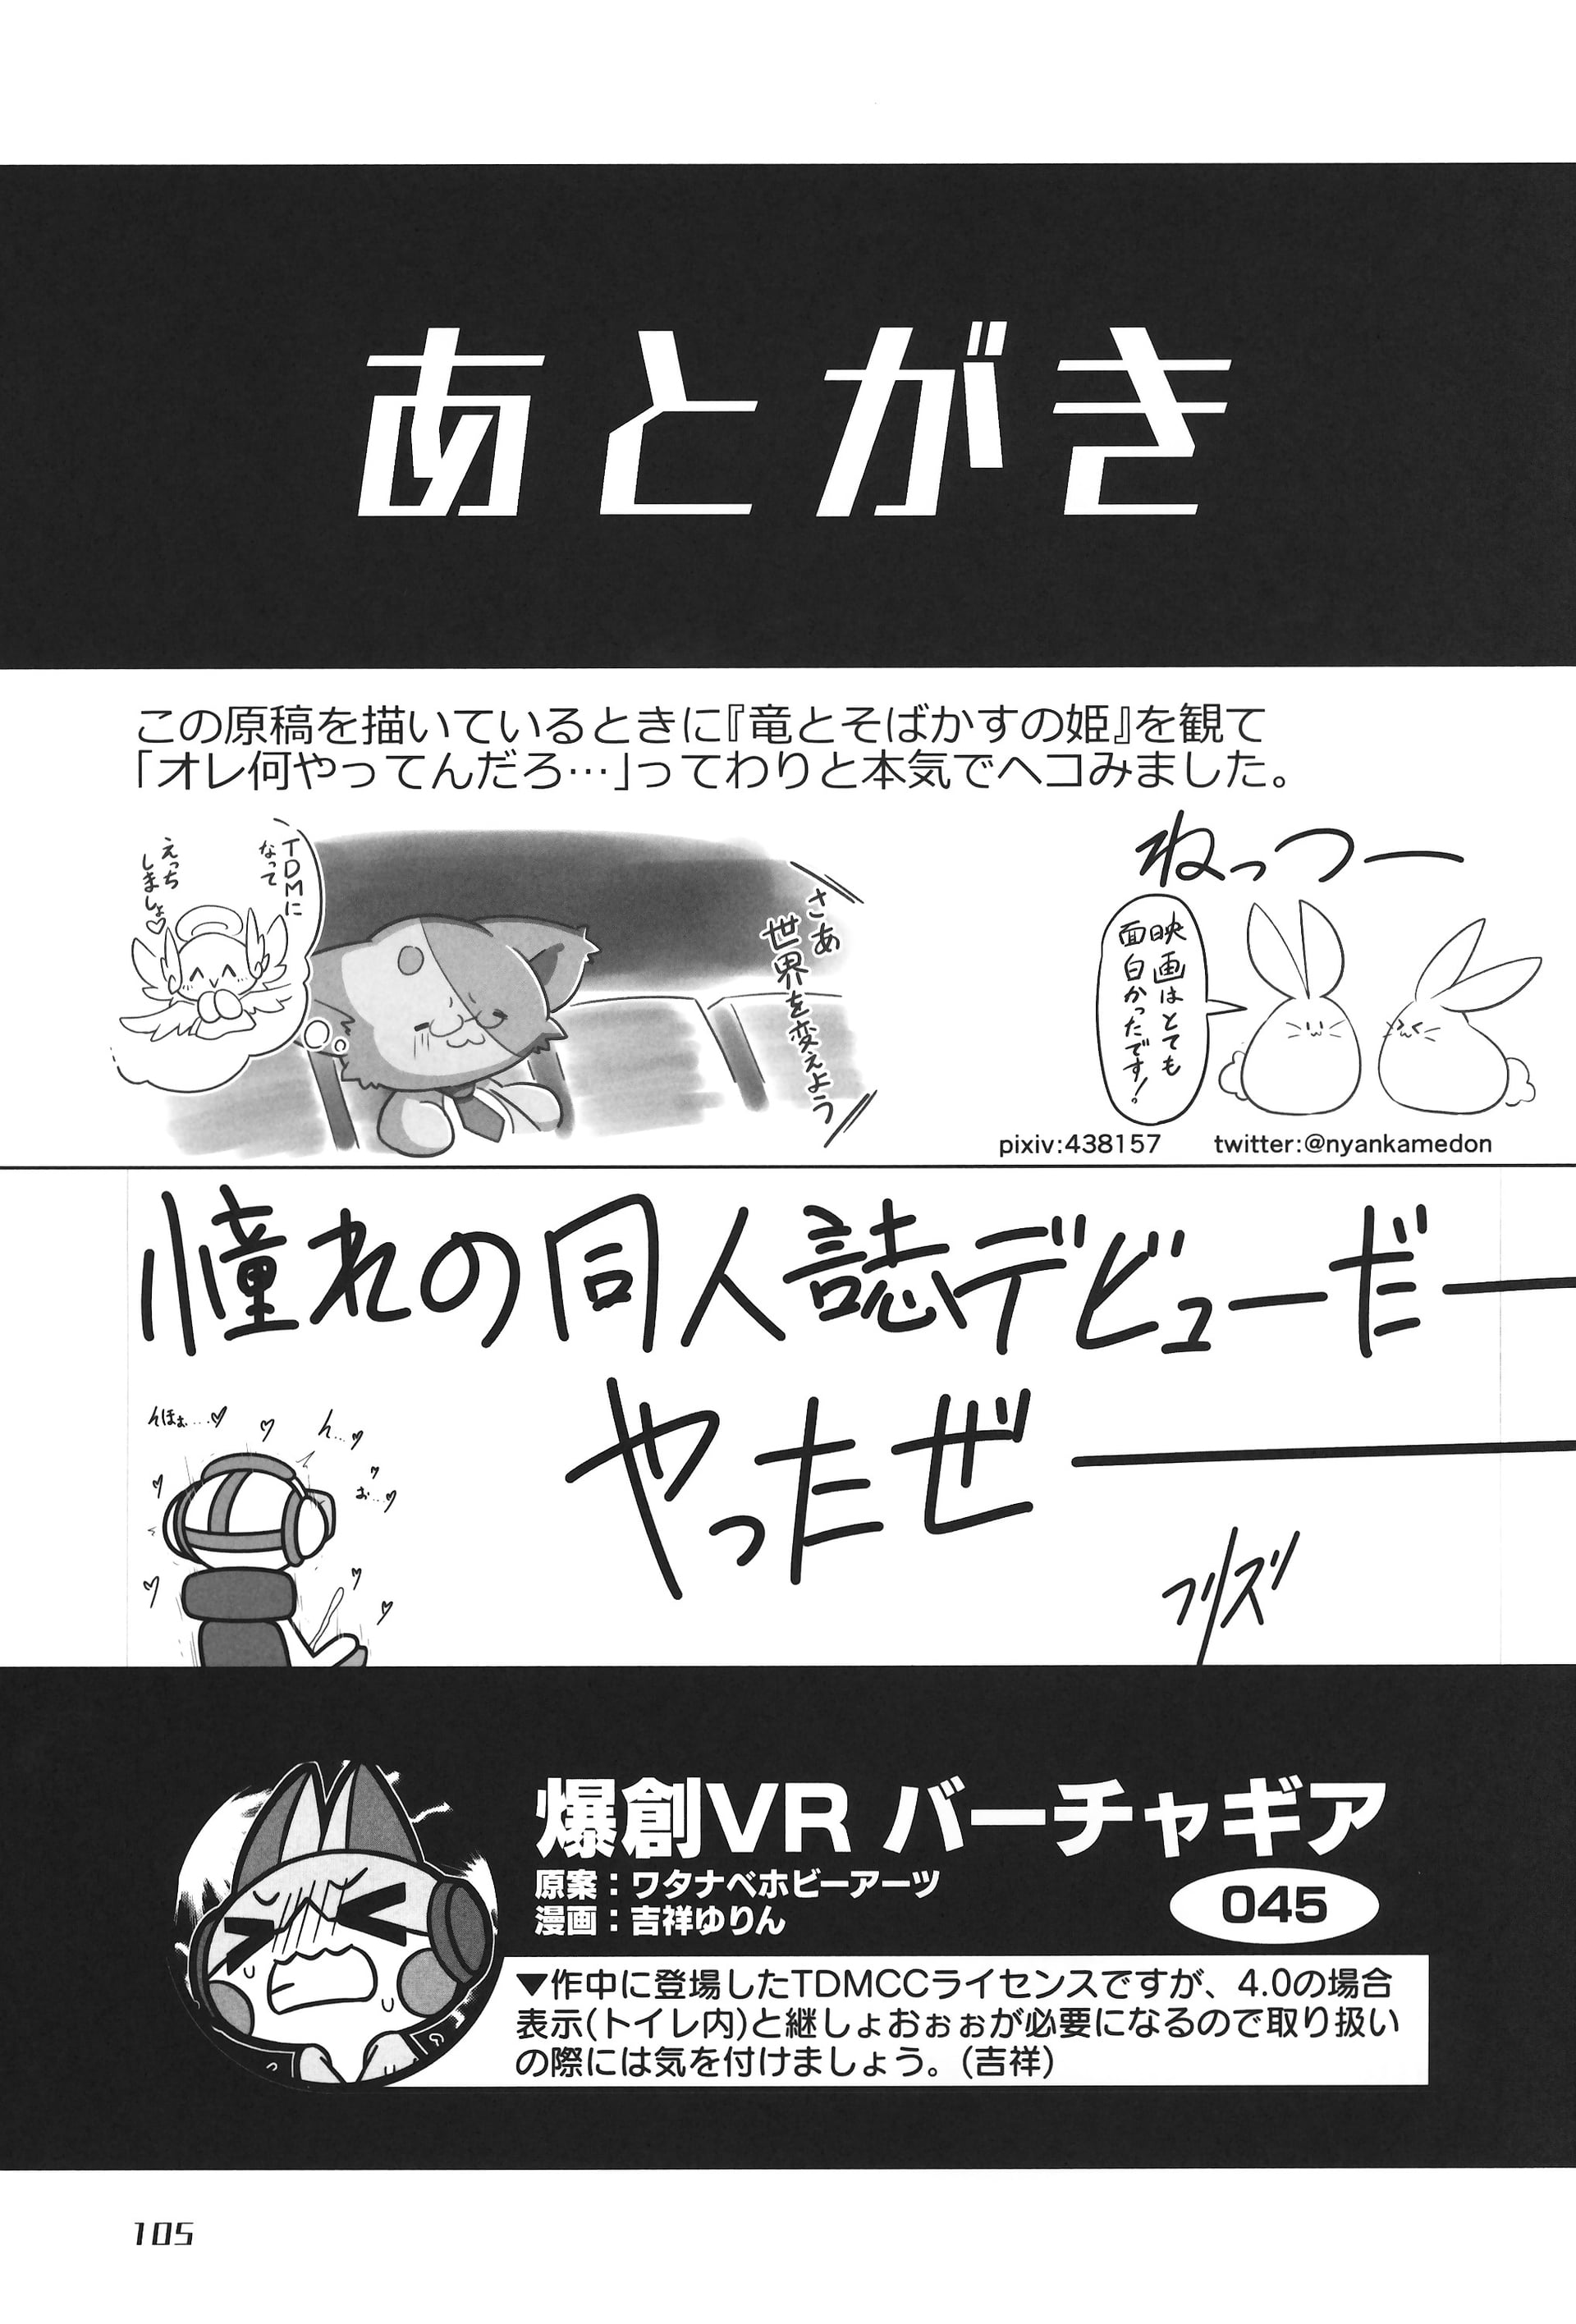 あとがき
この原稿を描いているときに『竜とそばかすの姫』を観て
「オレ何やってんだろ…」ってわりと本気でヘコみました。
ねっつー
映画はとても
面白かったです！
さあ
世界を変えよう
TDMに
なって
えっち
しましょ♡
pixiv:438157 twitter:@nyankamedon
憧れの同人誌デビューだー
やったぜー
んほぉ…♡
ん…♡
お…♡
フリズリ
爆創VR バーチャギア
原案：ワタナベホビーアーツ
漫画：吉祥ゆりん
045
▼作中に登場したTDMCCライセンスですが、4.0の場合
表示(トイレ内)と継しょおぉぉが必要になるので取り扱い
の際には気を付けましょう。(吉祥)
105